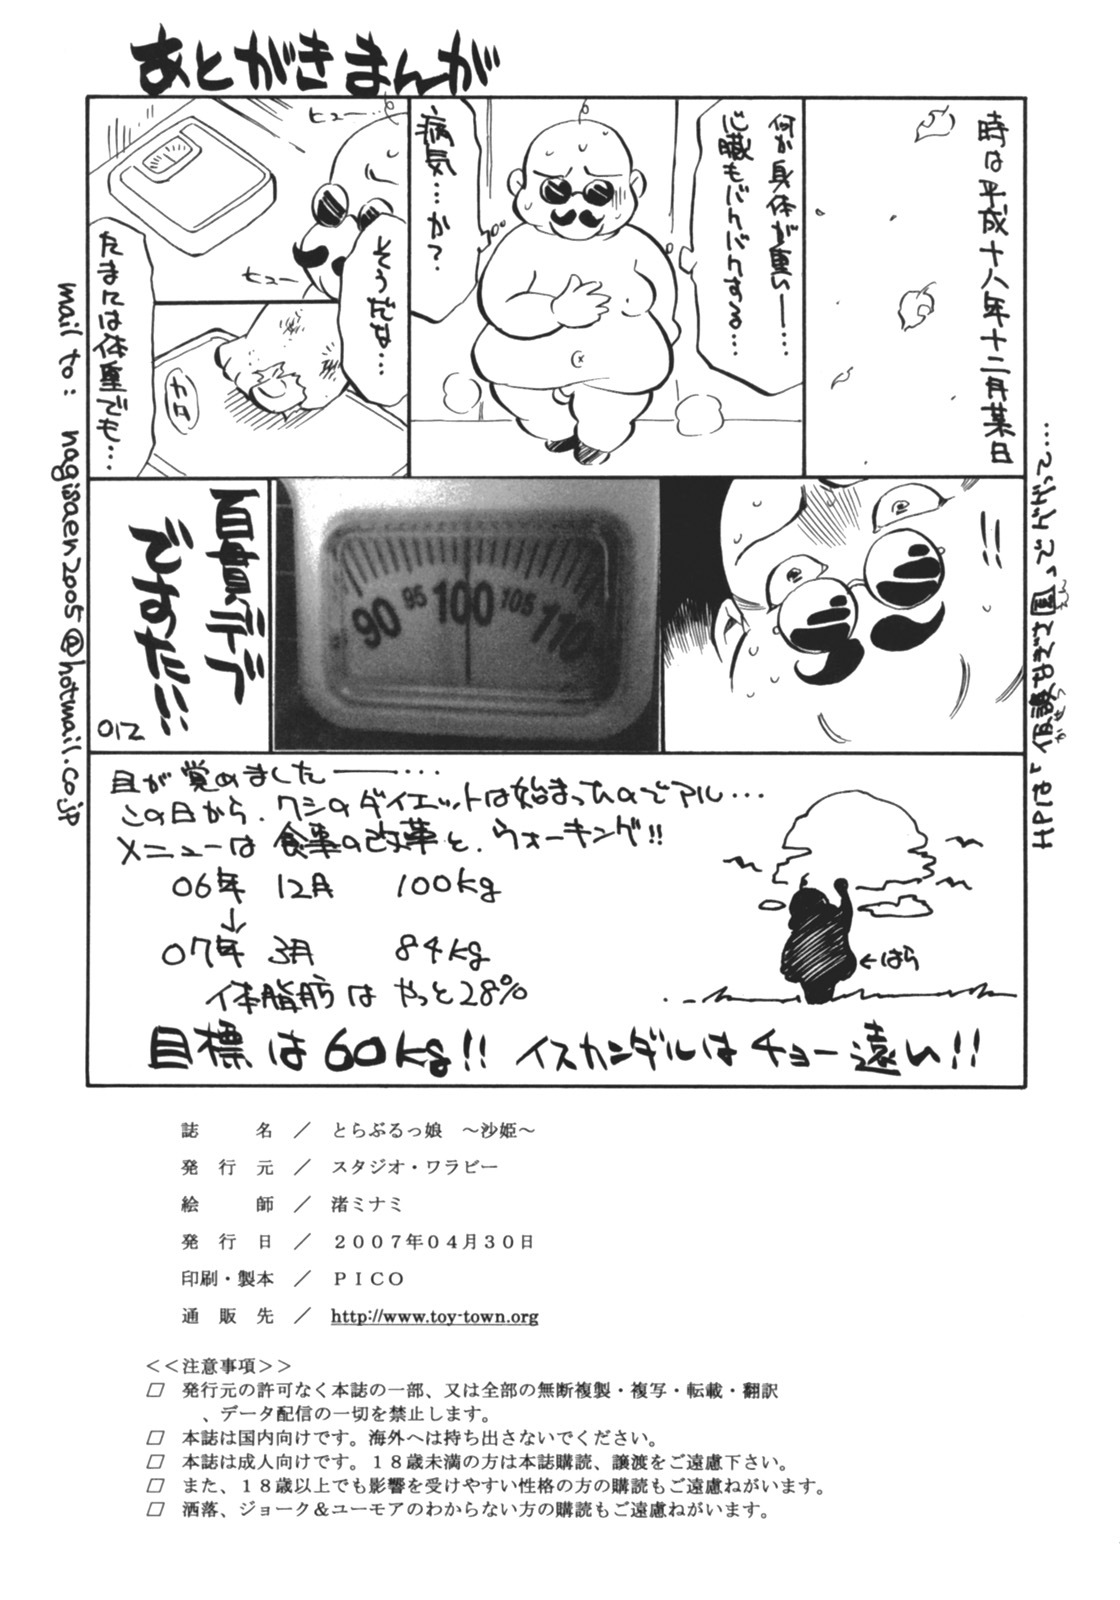 あとがきまんが
時は平成十八年十二月某日
何か身体が重い──…
心臓もバクバクする…
病気…か?
ヒュー…
ヒュー
そうだな…
たまには体重でも…
カタ
!!
90 95 100 105 110
百貫デブ
ですた!!
012
目が覚めました───…
この日から、ワシのダイエットは始まったのでアル…
メニューは食事の改革と、ウォーキング!!
06年 12月 100kg
↓
07年 3月 84kg
体脂肪はやっと28%
←はら
目標は60kg!! イスカンダルはチョー遠い!!
mail to: nagisaen2005@hotmail.co.jp
HPは「仮設なぎさ園」でググって…
かせつ
えん
誌名／とらぶるっ娘 ～沙姫～
発行元／スタジオ・ワラビー
絵師／渚ミナミ
発行日／２００７年０４月３０日
印刷・製本／ＰＩＣＯ
通販先／http://www.toy-town.org
＜＜注意事項＞＞
□ 発行元の許可なく本誌の一部、又は全部の無断複製・複写・転載・翻訳
、データ配信の一切を禁止します。
□ 本誌は国内向けです。海外へは持ち出さないでください。
□ 本誌は成人向けです。１８歳未満の方は本誌購読、譲渡をご遠慮下さい。
□ また、１８歳以上でも影響を受けやすい性格の方の購読もご遠慮ねがいます。
□ 洒落、ジョーク＆ユーモアのわからない方の購読もご遠慮ねがいます。